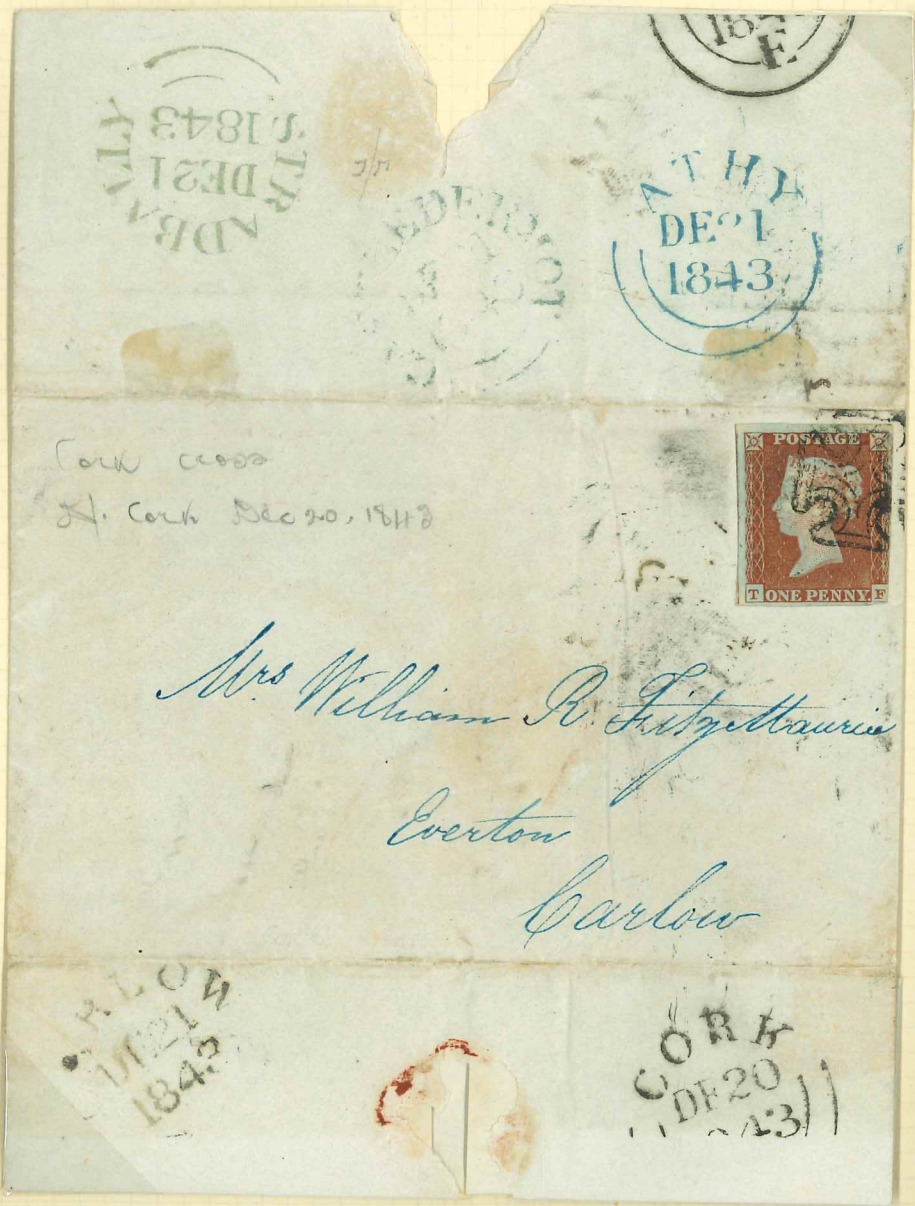 184
E
STRADBALLY
DE21
1843
ATHY
DE21
1843
Cork cross
Cork Dec 20, 1843
POSTAGE
T ONE PENNY. F
Mrs William R. FitzMaurice
Everton
Carlow
RLOW
DE21
1843
CORK
DE20
843